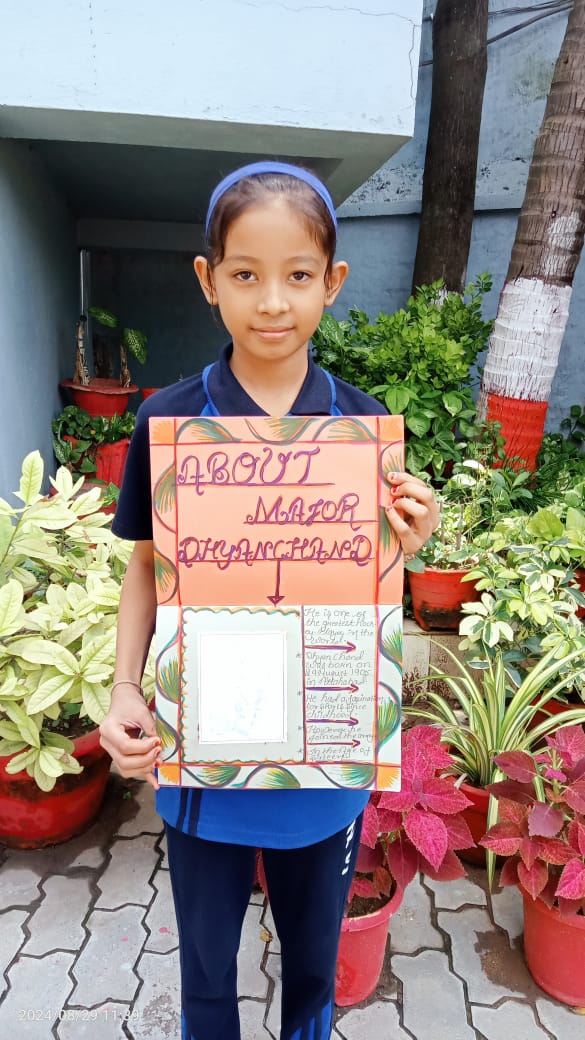 ABOUT
MAJOR
DHYANCHAND
He is one of
the greatest Hock
ey Player in the
world.
Dhyan Chand
was born on
29 August 1905
in Allahabad
He had a fascination
for sports since
childhood
However he
joined the army
In the Age of
sixteen
2024/08/29 11:39